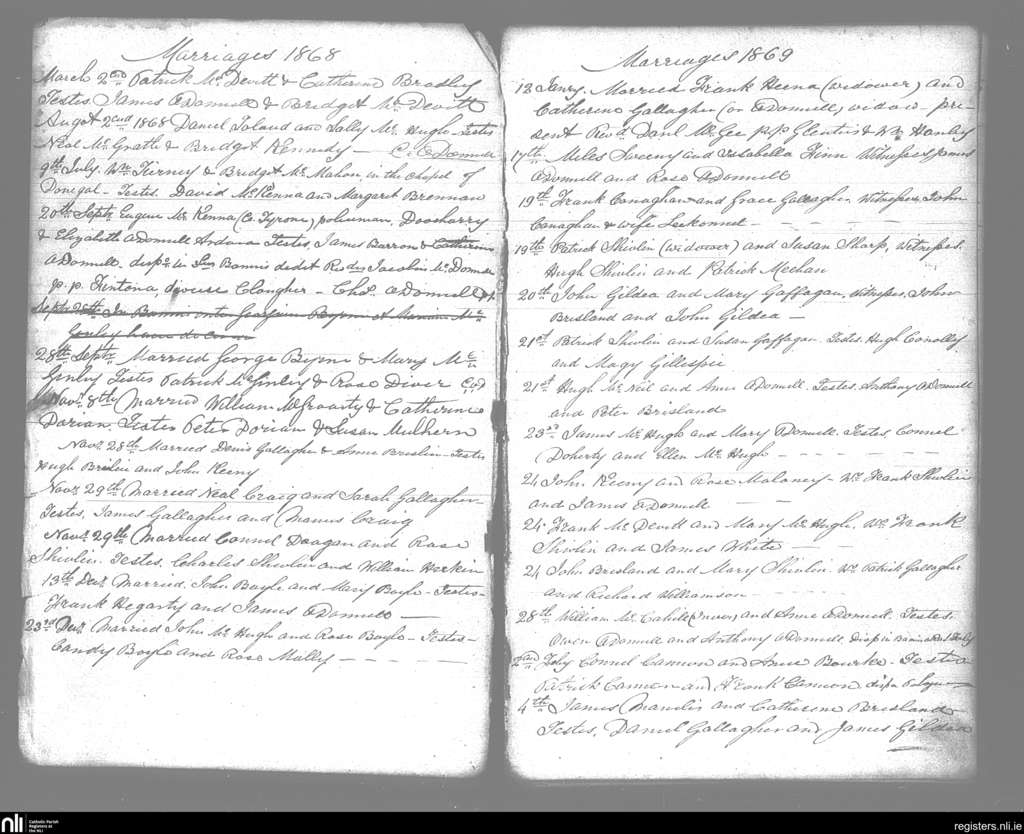 Marriages 1868
March 2nd Patrick Mc Devitt & Catherine Bradley
Testes James O'Donnell & Bridget Mc Devitt
Augst 2nd 1868 Daniel Toland and Sally Mc Hugh - Testes
Neal Mc Grath & Bridget Kennedy — C. O'Donnell
9th July. Wm Tierney & Bridget Mc Mahon, in the chapel of
Donegal - Testes. David McKenna and Margaret Brennan
20th Septr Eugene Mc Kenna (Co. Tyrone), policeman, Doocharry
& Elizabeth O'Donnell Ardara Testes, James Barron & Catherine
O'Donnell. dispn in Bannis dedit Rvdus Jacobus Mc Donnell
p.p. Fintona, diocese Clogher - Chas. O'Donnell
Septr 28th In Bannis inter Georgium Byrne et Mariam Mc
Ginley
28th Septr Married George Byrne & Mary Mc
Ginley Testes Patrick McGinley & Rose Diver
Novr 8th Married William McGroarty & Catherine
Dorian. Testes Peter Dorian & Susan Mulhern
Novr 28th Married Denis Gallagher & Annie Breslin - Testes
Hugh Breslin and John Keeny
Novr 29th Married Neal Craig and Sarah Gallagher -
Testes, James Gallagher and Manus Craig
Novr 29th Married Connel Doogan and Rose
Shivlin. Testes. Charles Shivlin and William Herkin
13th Decr Married, John Boyle and Mary Boyle - Testes -
Frank Hegarty and James O'Donnell —
23rd Decr Married John Mc Hugh and Rose Boyle - Testes -
Candy Boyle and Rose Mally — - - -
Marriages 1869
12 Janry. Married Frank Heena (widower) and
Catherine Gallagher (or O'Donnell), widow - pre-
sent Revd Danl McGee p.p. Glenties & Wm Hanley
17th Miles Sweeny and Isabella Finn Witnesses James
O'Donnell and Rose O'Donnell
19th Frank Canaghan and Grace Gallagher Witnesses, John
Canaghan & wife Leckonnel -
19th Patrick Shivlin (widower) and Susan Sharp, Witnesses.
Hugh Shivlin and Patrick Meehan
20th John Gildea and Mary Gaffagan. Witnesses. John
Brisland and John Gildea —
21st Patrick Shivlin and Susan Gaffagan. Testes. Hugh Conolly
and Magy Gillespie
21st Hugh Mc Neil and Anne O'Donnell. Testes. Anthony O'Donnell
and Peter Brisland
23rd James Mc Hugh and Mary O'Donnell. Testes. Connel
Doherty and Ellen Mc Hugh - - - -
24 John Keeny and Rose Maloney - Ws Frank Shivlin
and James O'Donnell
24. Frank Mc Devitt and Mary Mc Hugh. Ws. Frank
Shivlin and James White —
24 John Brisland and Mary Shivlin. Ws Patrick Gallagher
and Richard Williamson - - -
28th William Mc Cahill (Inver) and Anne O'Donnell. Testes.
Owen O'Donnell and Anthony O'Donnell
2nd Feby Connel Cannon and Anne Bourke - Testes
Patrick Cannon and Frank Cannon
4th James Maneelis and Catherine Brisland
Testes. Daniel Gallagher and James Gildea
nli
Catholic Parish
Registers at
the NLI
registers.nli.ie